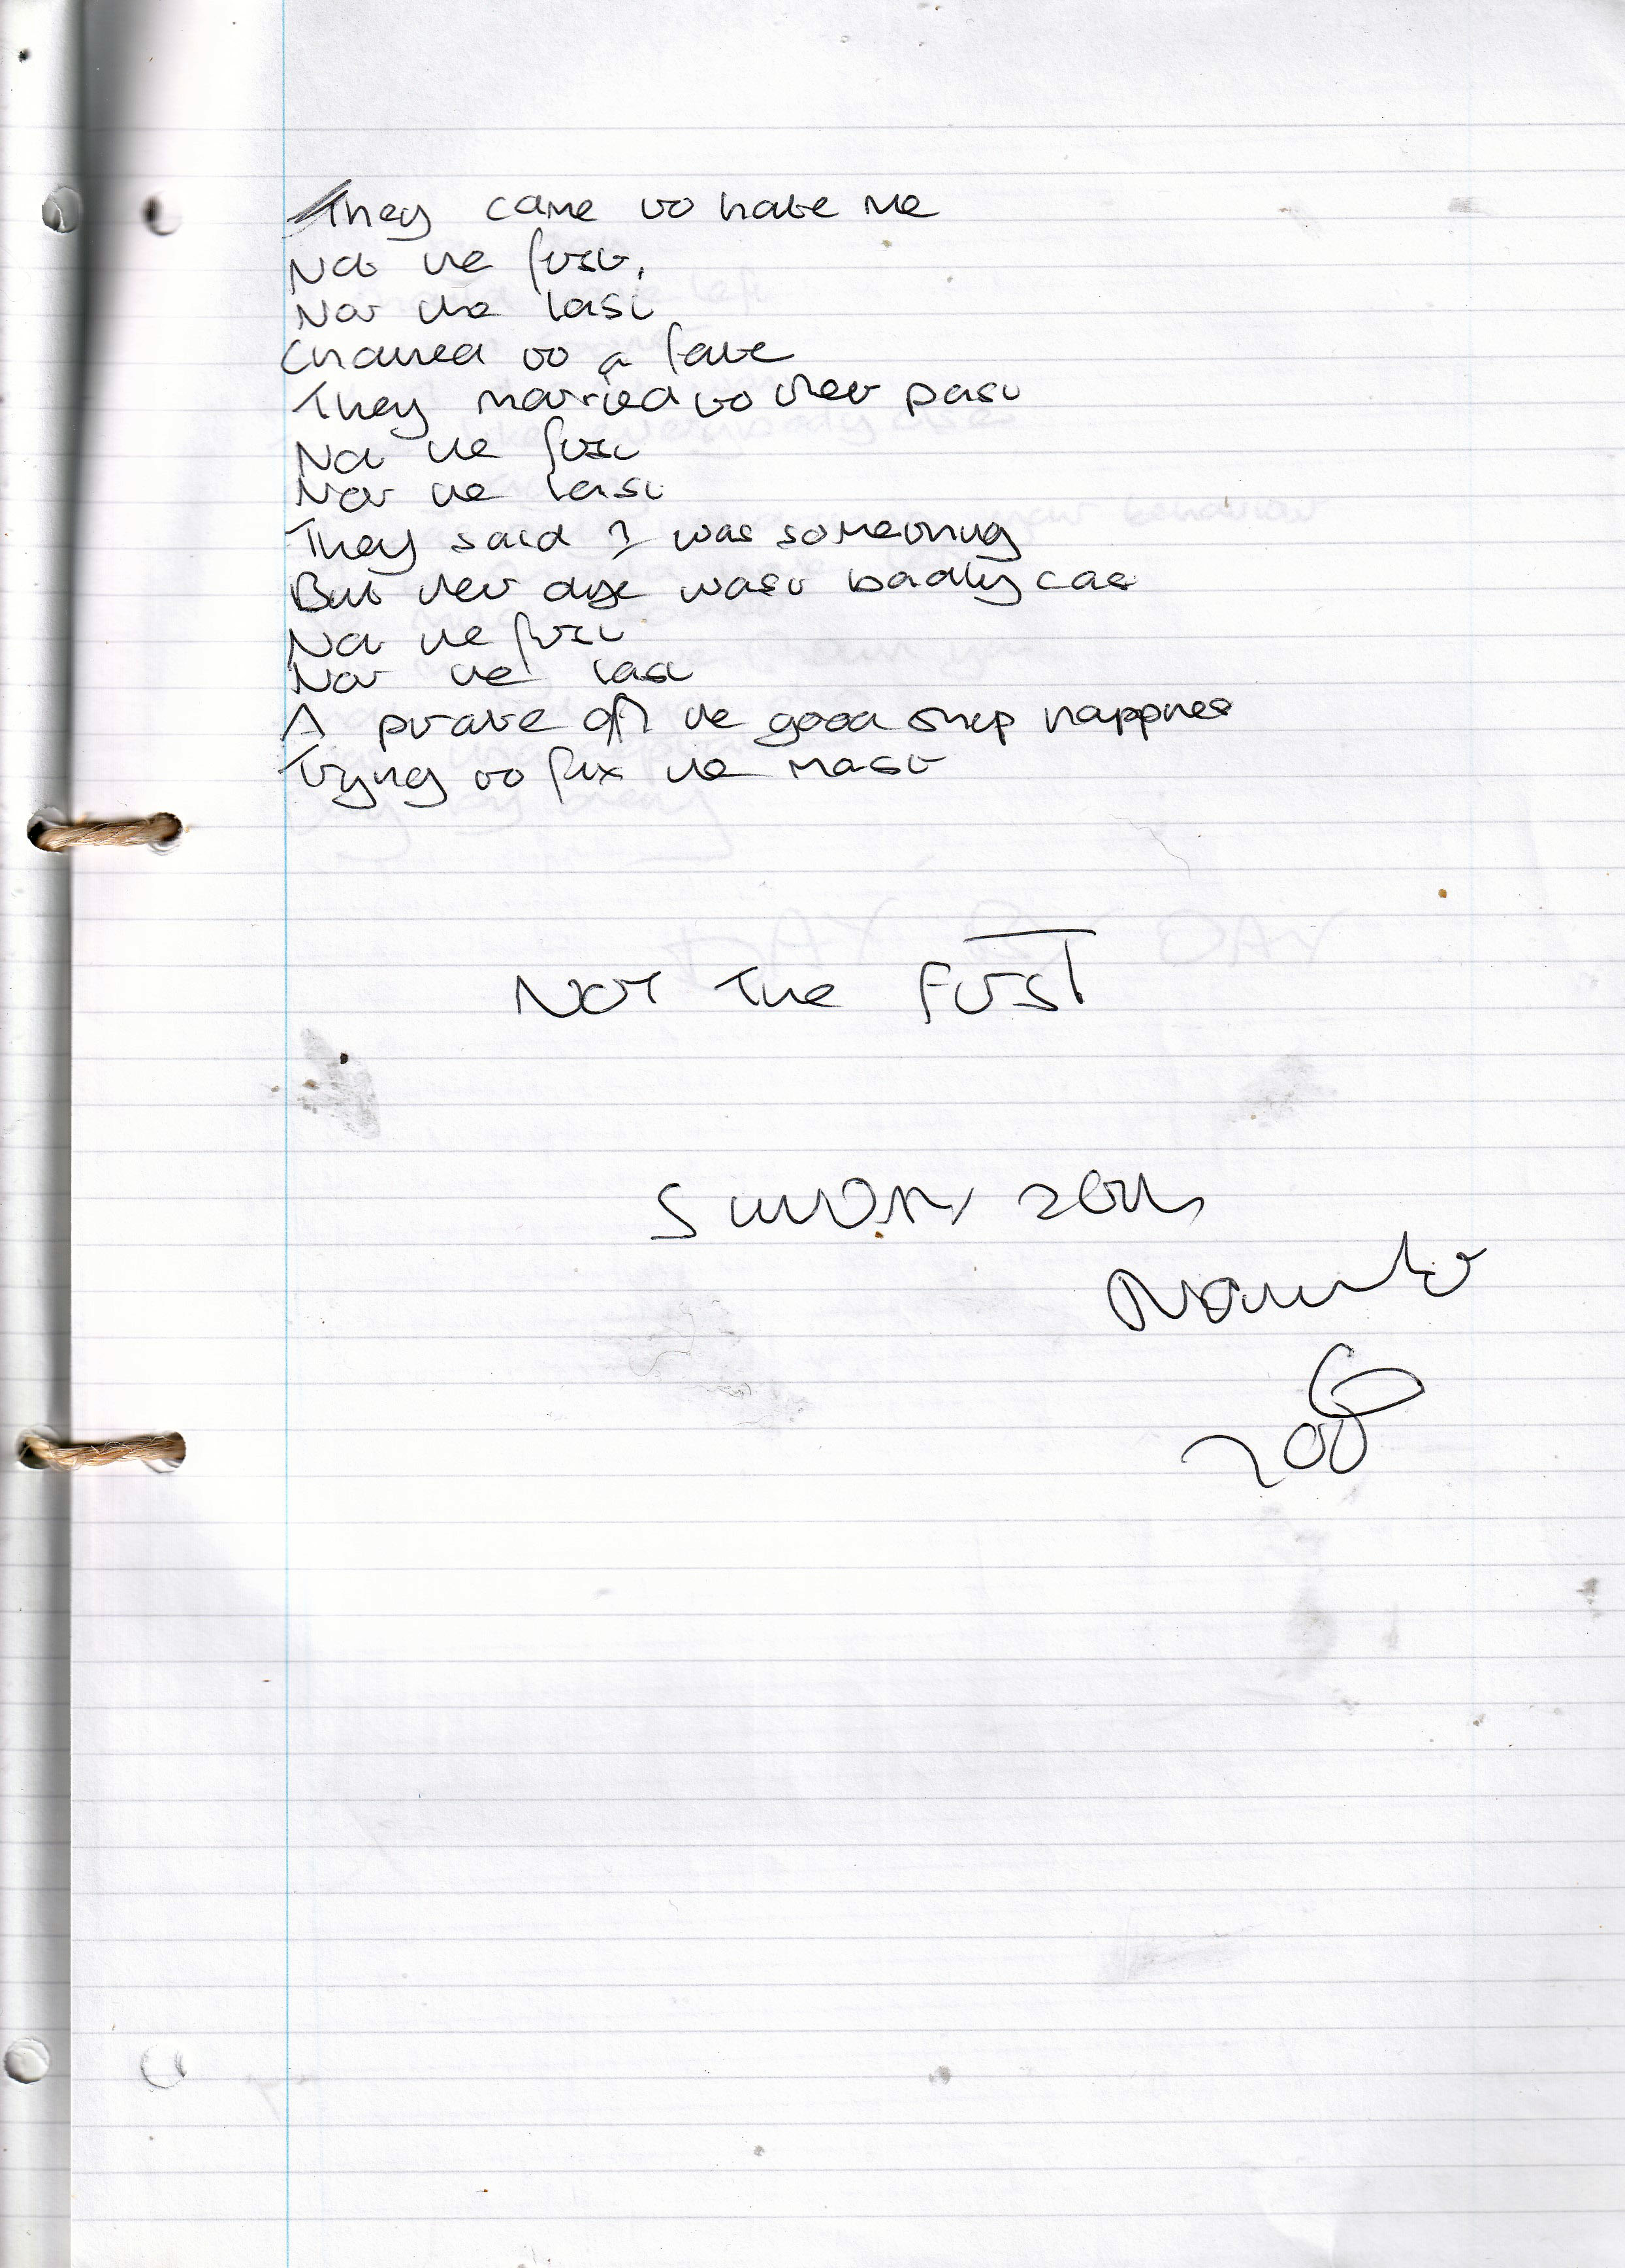 They came to hate me
Not the first,
Nor the last
Chained to a fate
They married to their past
Not the first
Nor the last
They said I was something
But their dye was badly cast
Not the first
Nor the last
A pirate off the good ship happiness
Trying to fix the mast
NOT The First
SUNDAY 26th
November
2006